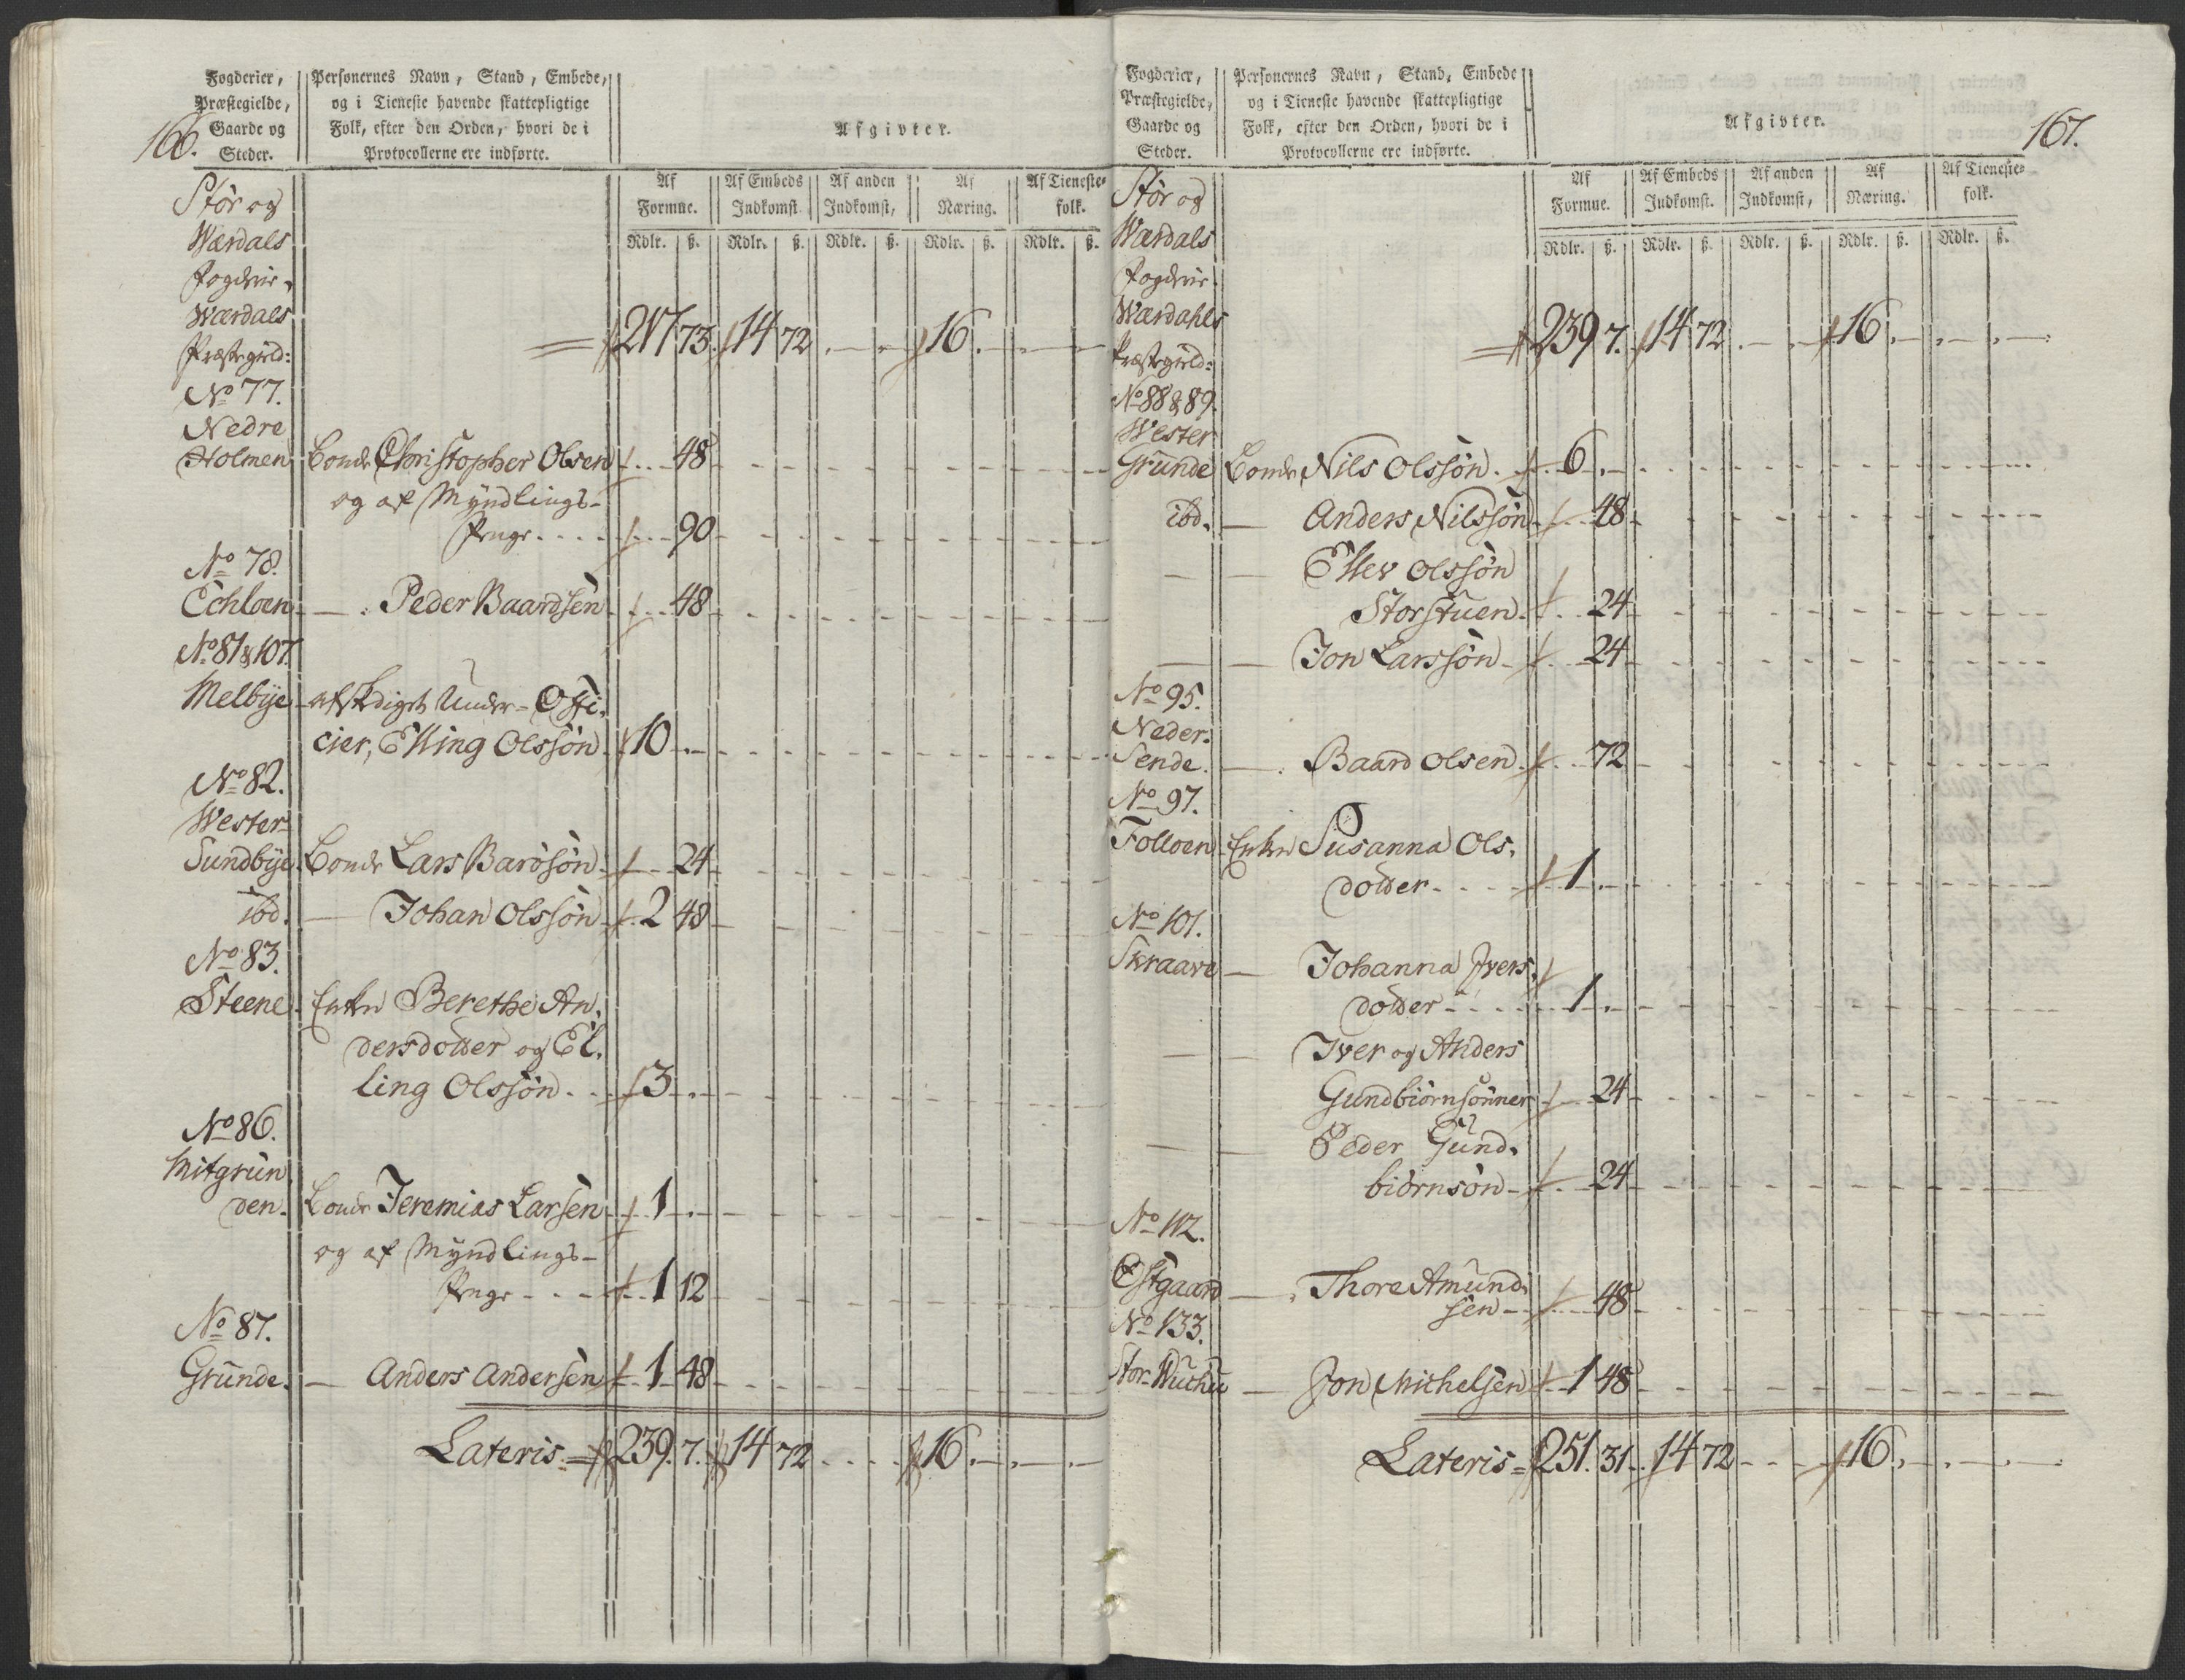 166.
Fogderier,
Præstegielde,
Gaarde og
Steder.
Personernes Navn, Stand, Embede,
og i Tieneste havende skattepligtige
Folk, efter den Orden, hvori de i
Protocollerne ere indførte.
Afgivter.
Af Formue. Af Embeds Indkomst. Af anden Indkomst, Af Næring. Af Tieneste-folk.
Rdlr. ß. Rdlr. ß. Rdlr. ß. Rdlr. ß. Rdlr. ß.
Stör og
Værdals
Fogderie.
Værdals
Præstegield: 217 73. 14 72 . — . 16. — . —
No 77.
Nedre
Holmen Bonde Christopher Olsen . . 48
og af Myndlings-
Penge . . . . 90
No 78.
Echloen — . Peder Baardsen . . 48
No 81 & 107.
Melbye afskediget Under-Offi-
cier, Elling Olssøn. 10. —
No 82.
Wester-
Sundbye. Bonde Lars Barosøn . . 24
ibd. — Johan Olssøn . 2 48
No 83.
Steene. Enken Berethe An-
dersdotter og El-
ling Olssøn . . 3 . —
No 86.
Mitgrun
den. Bonde Jeremias Larsen . 1 . —
og af Myndlings-
Penge - - - . 1 12
No 87.
Grunde. — Anders Andersen . 1 48
Lateris. 239. 7. 14 72 . . . . 16. — . — . —
167.
Fogderier,
Præstegielde,
Gaarde og
Steder.
Personernes Navn, Stand, Embede
og i Tieneste havende skattepligtige
Folk, efter den Orden, hvori de i
Protocollerne ere indførte.
Afgivter.
Af Formue. Af Embeds Indkomst. Af anden Indkomst, Af Næring. Af Tieneste-folk.
Rdlr. ß. Rdlr. ß. Rdlr. ß. Rdlr. ß. Rdlr. ß.
Stör og
Værdals
Fogderie.
Værdahls
Præstegield: 239 7. 14 72 . — . 16 . — . — . —
No 88 & 89.
Wester
Grunde Bonde Nils Olssøn . . 6 . —
ibd. — Anders Nilssøn . . 48
— — Eller Olssøn
Storstuen . . 24
— — Jon Larssøn . . 24
No 95.
Neder-
Sende. — . Baard Olsen . . 72
No 97.
Folloen Enken Susanna Ols-
dotter . . . . 1 . —
No 101.
Skraave — Johanna Ivers-
dotter . . . . 1 . —
— — Iver og Anders
Gundbiørnsønner . 24
— — Peder Gund-
biørnsøn . . 24
No 112.
Østgaard — . Thore Amund-
sen — . . 48
No 133.
Stor Wuchu — Jon Michelsen . 1 48
Lateris 251. 31. 14 72 - - - 16. — . — . —